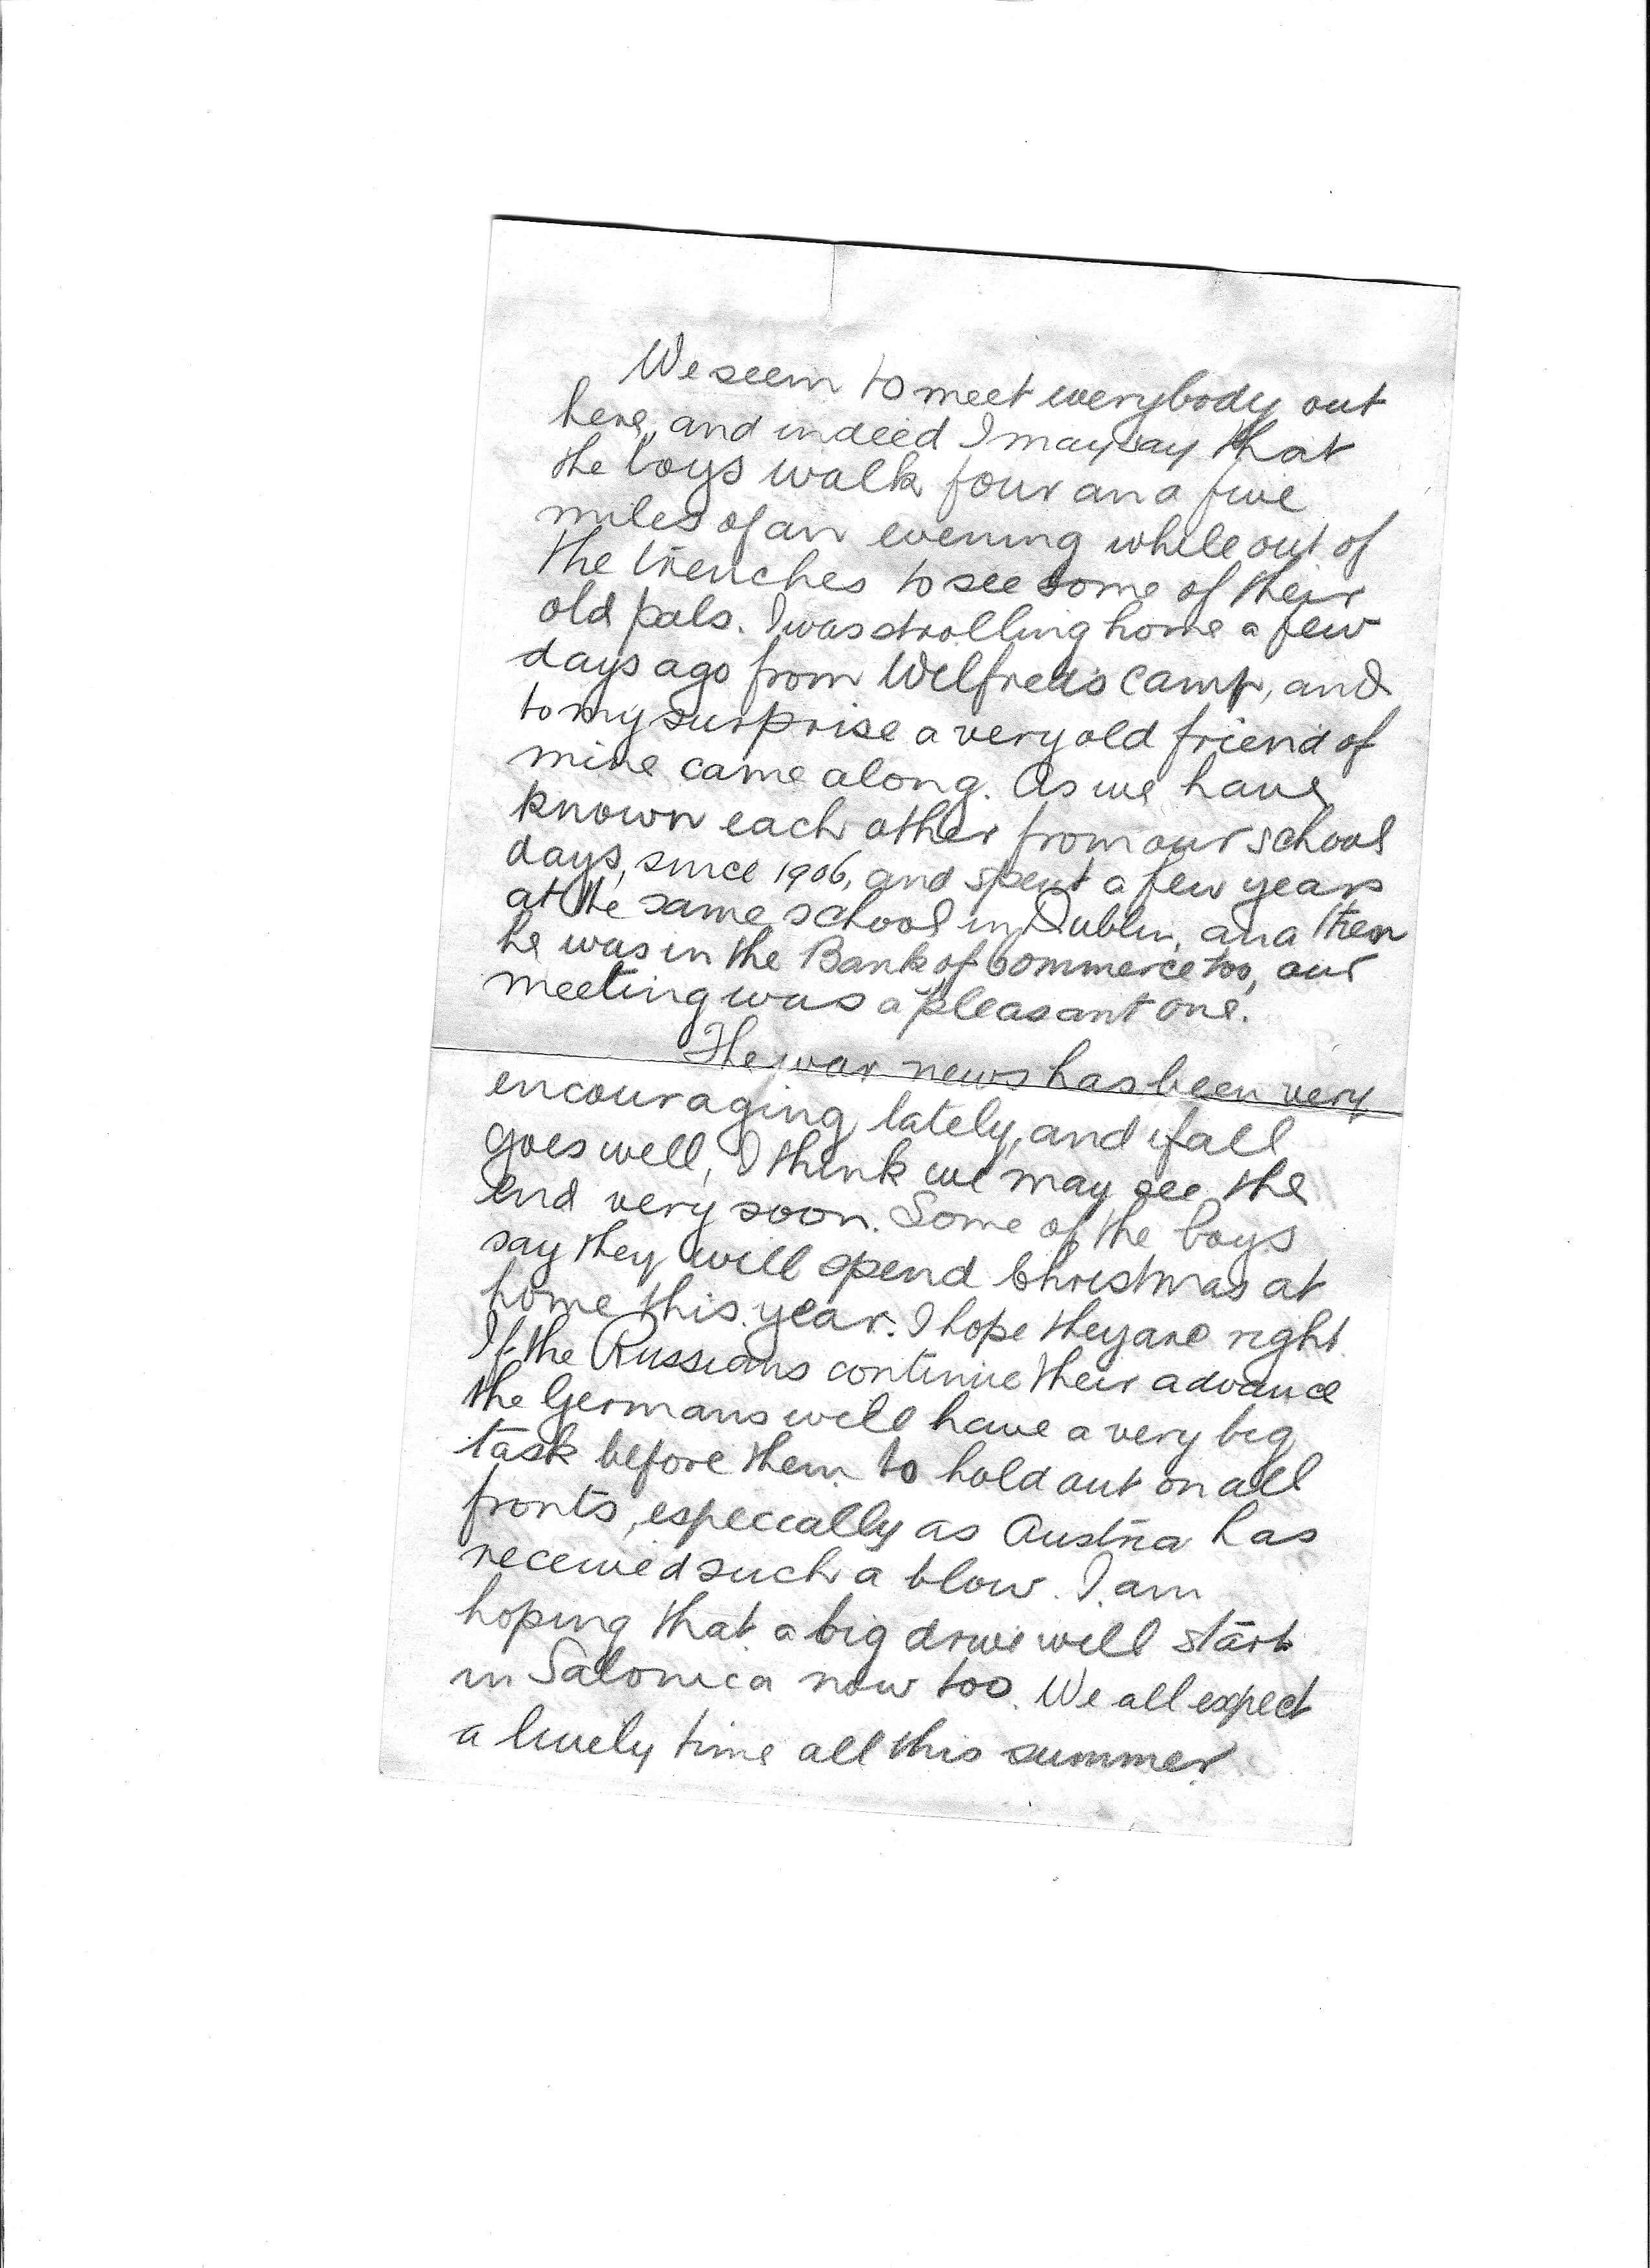 We seem to meet everybody out
here, and indeed I may say that
the boys walk four and five
miles of an evening while out of
the trenches to see some of their
old pals. I was strolling home a few
days ago from Wilfred's camp, and
to my surprise a very old friend of
mine came along. As we have
known each other from our school
days, since 1906, and spent a few years
at the same school in Dublin, and then
he was in the Bank of Commerce too, our
meeting was a pleasant one.
The war news has been very
encouraging lately, and if all
goes well, I think we may see the
end very soon. Some of the boys
say they will spend Christmas at
home this year. I hope they are right.
If the Russians continue their advance
the Germans will have a very big
task before them to hold out on all
fronts, especially as Austria has
received such a blow. I am
hoping that a big drive will start
in Salonica now too. We all expect
a lively time all this summer.